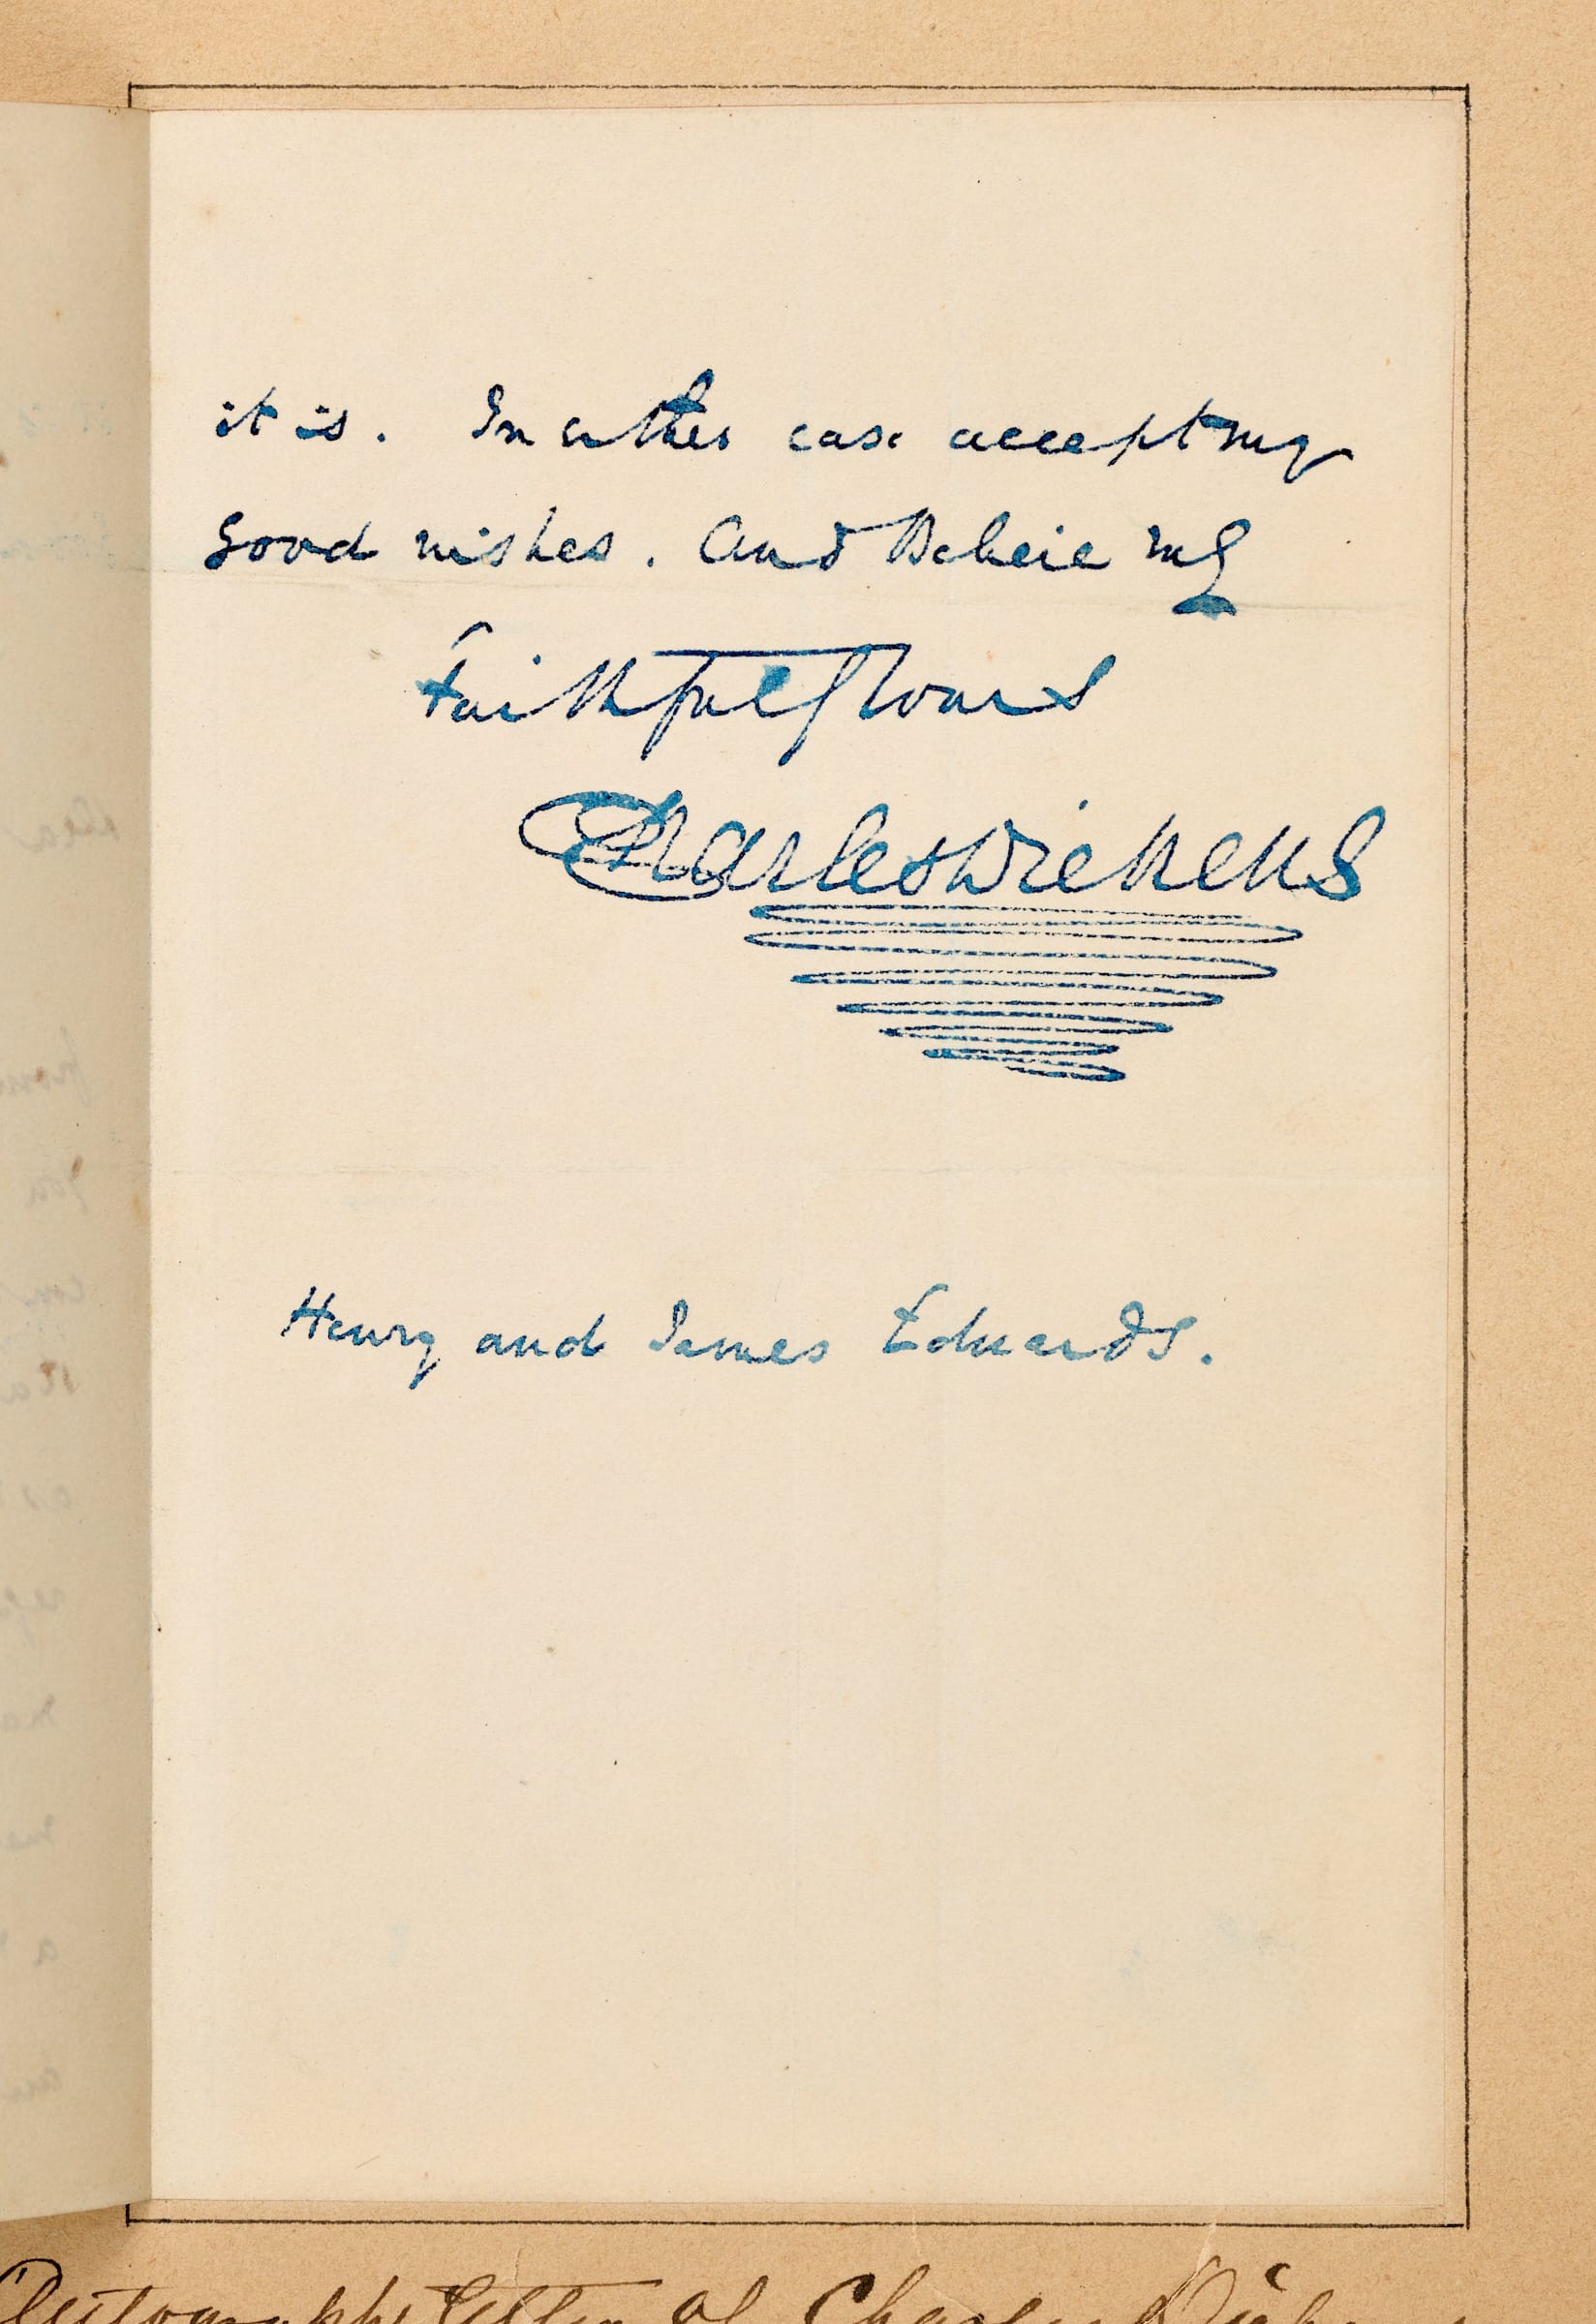 it is. In either case accept my
good wishes. And Believe me
Faithfully Yours
Charles Dickens
Henry and James Edwards.
Autograph Letter of Charles